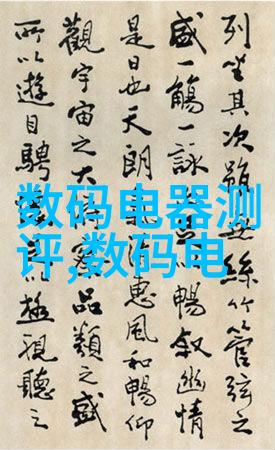 列坐其次雖無絲竹管弦之
盛一觴一詠暢敘幽情
是日也天朗惠風和暢仰
觀宇宙之大俯察品類之盛
所以遊目騁以極視聽之
数码电器测
评,数码电